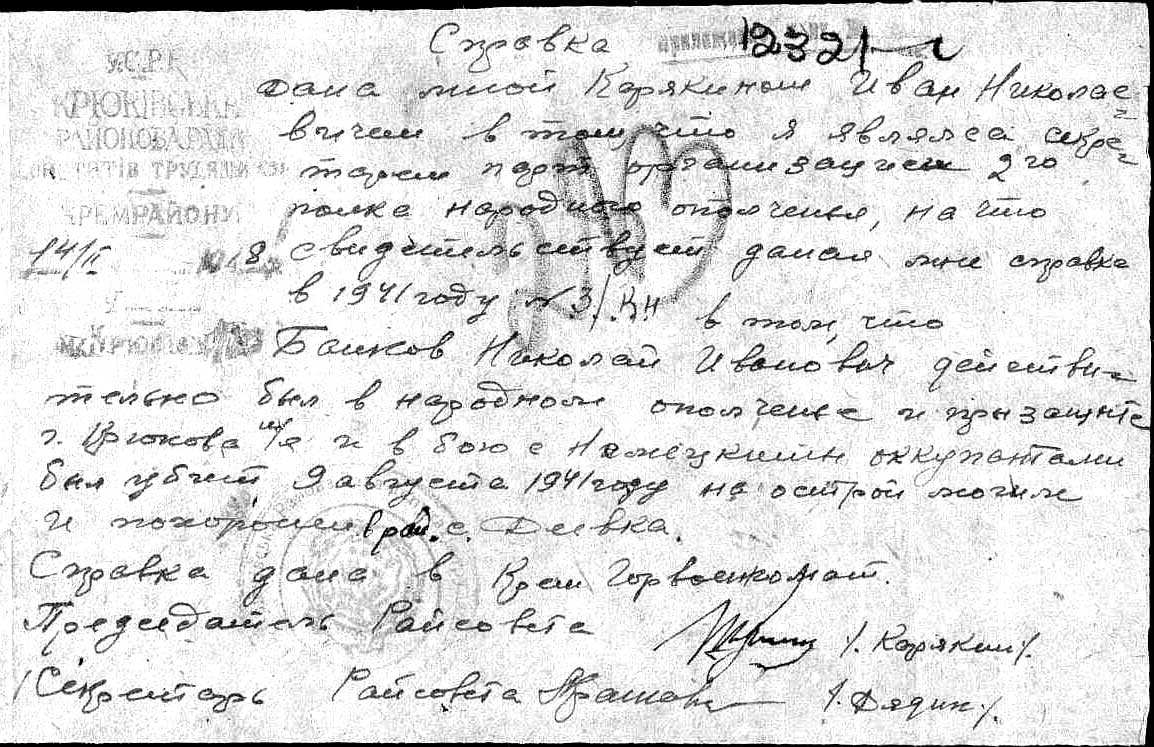 Справка 12321
У.С.Р.Р.
КРЮКІВСЬКА
ТРУДЯЩИХ
КРЕМРАЙОНУ
14/II 1948
дана мной Карякиным Иван Николае-
вичем в том, что я являлса секре-
тарем парт организацией 2го
полка народного ополченья, на что
свидетельствует даная мне справка
в 1941 году № 3/КН в том, что
Банков Николай Иванович действи-
тельно был в народном ополченье и при защите
г. Крюкова н/Д и в бою с Немецкими оккупантами
был убит 9 августа 1941 году на острой могиле
и похоронен в рай. с. Деевка.
Справка дана в Крем Горвоенкомат.
Председатель Райсовета /. Карякин/.
Секретарь Райсовета /. Дядик/.